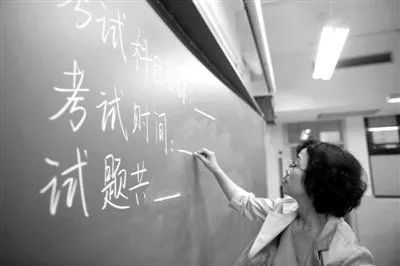 考试科目
考试时间:__
试题共__